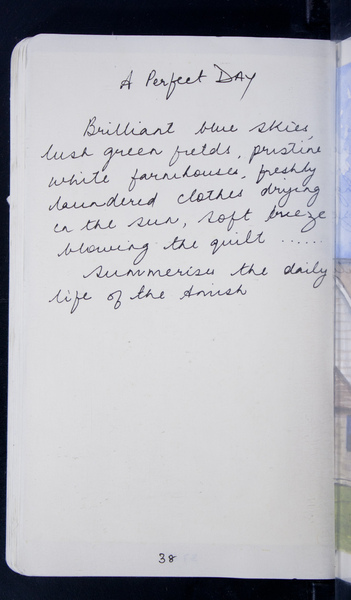 A Perfect DAY
Brilliant blue skies,
lush green fields, pristine
white farmhouses, freshly
laundered clothes drying
in the sun, soft breeze
blowing the quilt ......
summerises the daily
life of the Amish
38